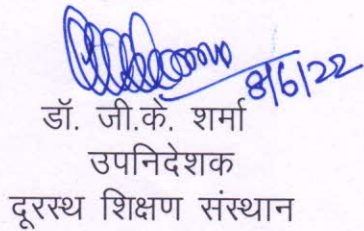 8/6/22
डॉ. जी.के. शर्मा
उपनिदेशक
दूरस्थ शिक्षण संस्थान